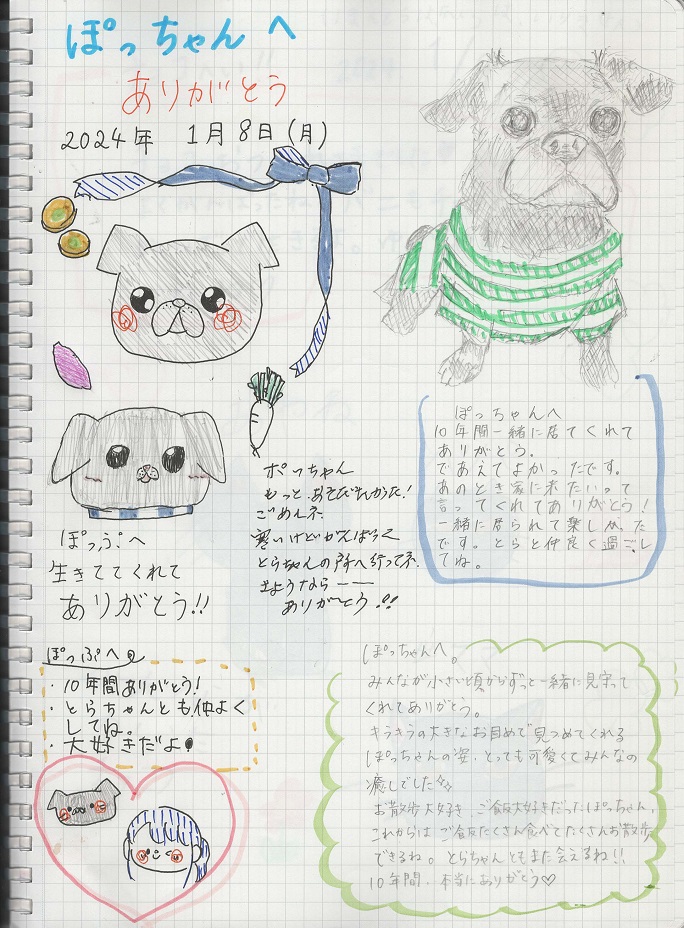 ぽっちゃんへ
ありがとう
2024年 1月8日(月)
ぽっちゃんへ
10年間一緒に居てくれて
ありがとう。
であえてよかったです。
あのとき家に来たいって
言ってくれてありがとう!
一緒に居られて楽しかった
です。とらと仲良く過ごし
てね。
ポっちゃん
もっとあそびたかった!
ごめんネ
寒いけどがんばって
とらちゃんの所へ行ってネ
さようならーー
ありがとう!!
ぽっぷへ
生きててくれて
ありがとう!!
ぽっぷへ
・10年間ありがとう!
・とらちゃんとも仲よく
してね。
・大好きだよ
ぽっちゃんへ。
みんなが小さい頃からずっと一緒に見守って
くれてありがとう。
キラキラの大きなお目めで見つめてくれる
ぽっちゃんの姿、とっても可愛くてみんなの
癒しでした
お散歩大好き、ご飯大好きだったぽっちゃん、
これからはご飯たくさん食べてたくさんお散歩
できるね。とらちゃんともまた会えるね!!
10年間、本当にありがとう♡